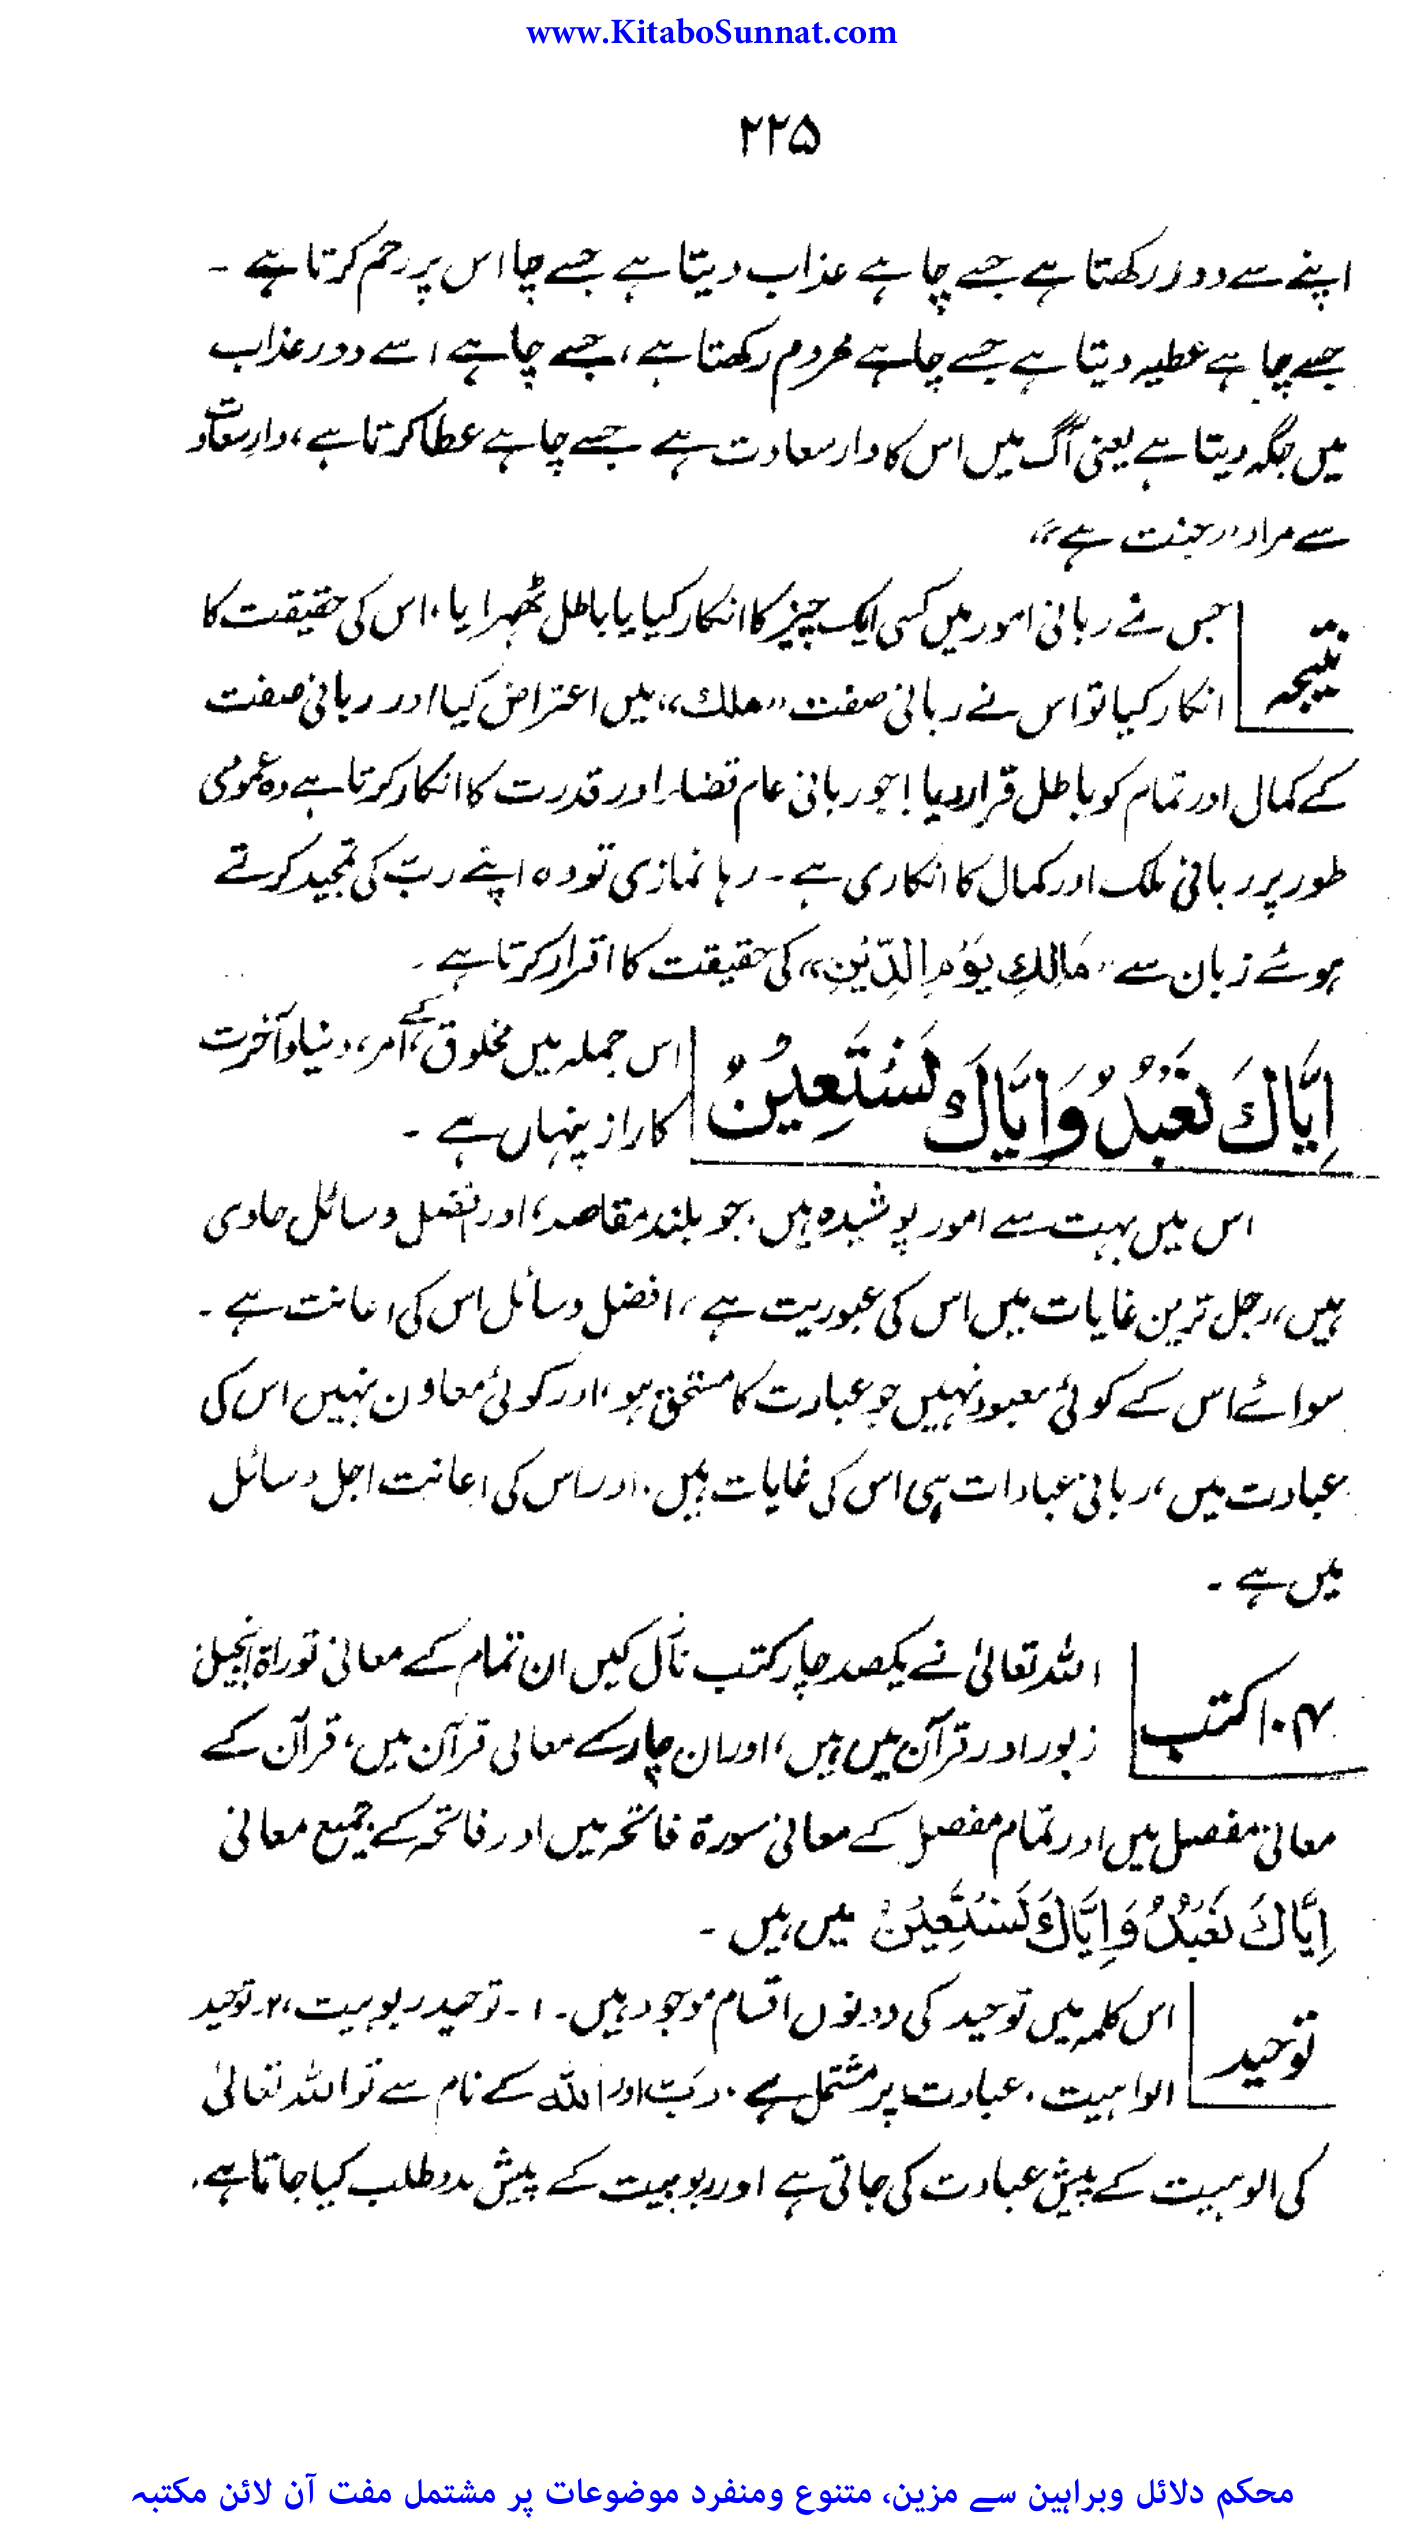 www.KitaboSunnat.com
۲۲۵
اپنے سے دور رکھتا ہے جسے چاہے عذاب دیتا ہے جسے چا اس پر رحم کرتا ہے ۔
جسے چاہے عطیہ دیتا ہے جسے چاہے محروم رکھتا ہے، جسے چاہے اسے دور عذاب
میں جگہ دیتا ہے یعنی آگ میں اس کا دار سعادت ہے جسے چاہے عطا کرتا ہے، دارِ سعادت
سے مراد "جنت ہے"
نتیجہ
جس نے ربانی امور میں کسی ایک چیز کا انکار کیا یا باطل ٹھہرایا، اس کی حقیقت کا
انکار کیا تو اس نے ربانی صفت "ملك" میں اعتراض کیا اور ربانی صفت
کے کمال اور تمام کو باطل قرار دیا! جو ربانی عام قضاء اور قدرت کا انکار کرتا ہے وہ عمومی
طور پر ربانی ملک اور کمال کا انکاری ہے ۔ رہا نمازی تو وہ اپنے ربّ کی تمجید کرتے
ہوئے زبان سے "مَالِكِ يَوْمِ الدِّيْنِ" کی حقیقت کا اقرار کرتا ہے ۔
اِيَّاكَ نَعْبُدُ وَاِيَّاكَ نَسْتَعِيْنُ
اس جملہ میں مخلوق کے، امر، دنیا و آخرت
کا راز پنہاں ہے ۔
اس میں بہت سے امور پوشیدہ ہیں. جو بلند مقاصد، اور افضل وسائل حاوی
ہیں، رجل ترین غایات میں اس کی عبوریت ہے، افضل وسائل اس کی اعانت ہے ۔
سوائے اس کے کوئی معبود نہیں جو عبادت کا مستحق ہو، اور کوئی معاون نہیں اس کی
عبادت میں، ربانی عبادات ہی اس کی غایات ہیں. اور اس کی اعانت اجل وسائل
میں ہے ۔
۱۰۴ کتب
اللہ تعالیٰ نے یکصد چار کتب نازل کیں ان تمام کے معانی توراۃ انجیل
زبور اور قرآن میں ہیں، اور ان چار کے معانی قرآن میں، قرآن کے
معانی مفصل میں اور تمام مفصل کے معانی سورۃ فاتحہ میں اور فاتحہ کے جمیع معانی
اِيَّاكَ نَعْبُدُ وَاِيَّاكَ نَسْتَعِيْنُ میں ہیں ۔
توحید
اس کلمہ میں توحید کی دونوں اقسام موجود ہیں۔ ۱۔ توحید ربوبیت، ۲۔ توحید
الواہیت. عبادت پر مشتمل ہے. ربّ اور اللہ کے نام سے تو اللہ تعالیٰ
کی الوہیت کے پیش عبادت کی جاتی ہے اور ربوبیت کے پیش مدد طلب کیا جاتا ہے.
محکم دلائل وبراہین سے مزین، متنوع ومنفرد موضوعات پر مشتمل مفت آن لائن مکتبہ